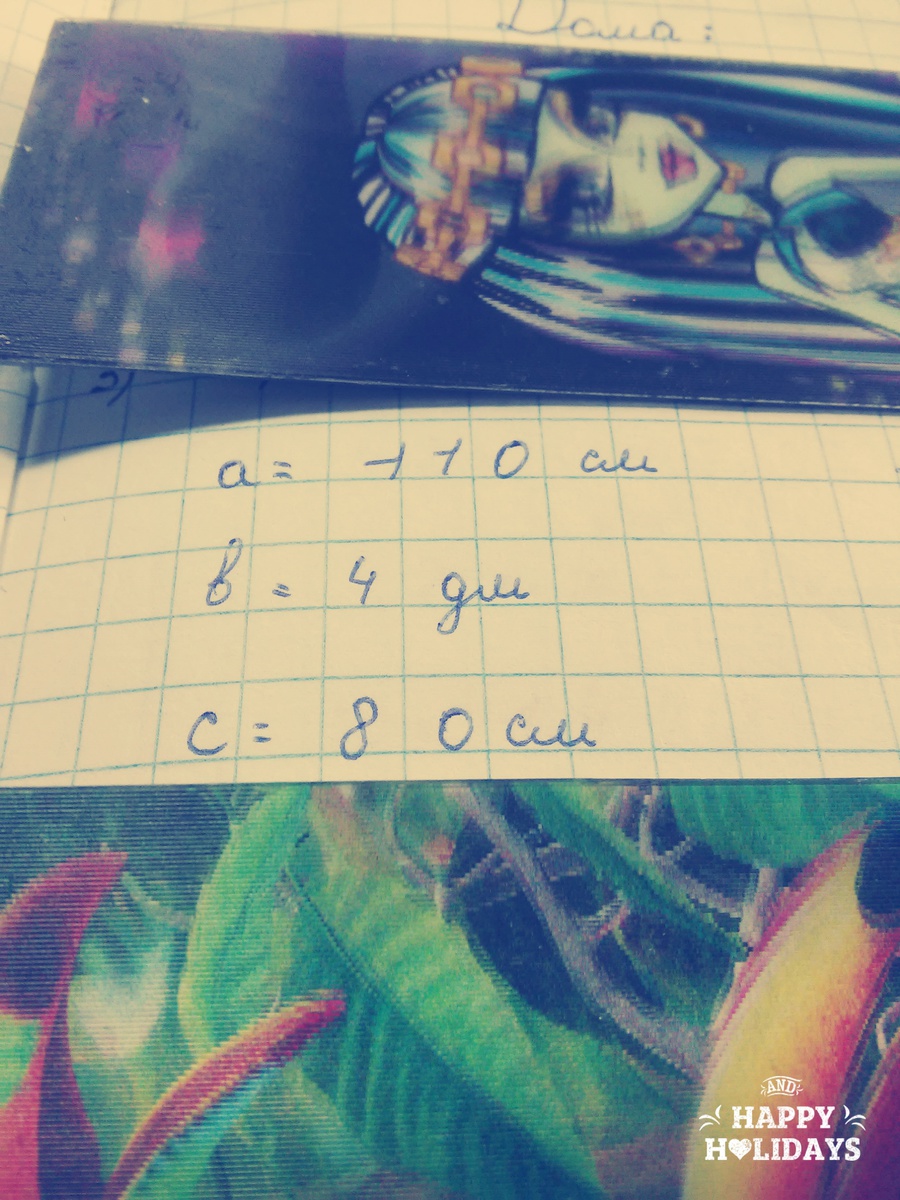 Дома:
2)
a = 110 см
в = 4 дм
c = 80 см
AND
HAPPY
HOLIDAYS